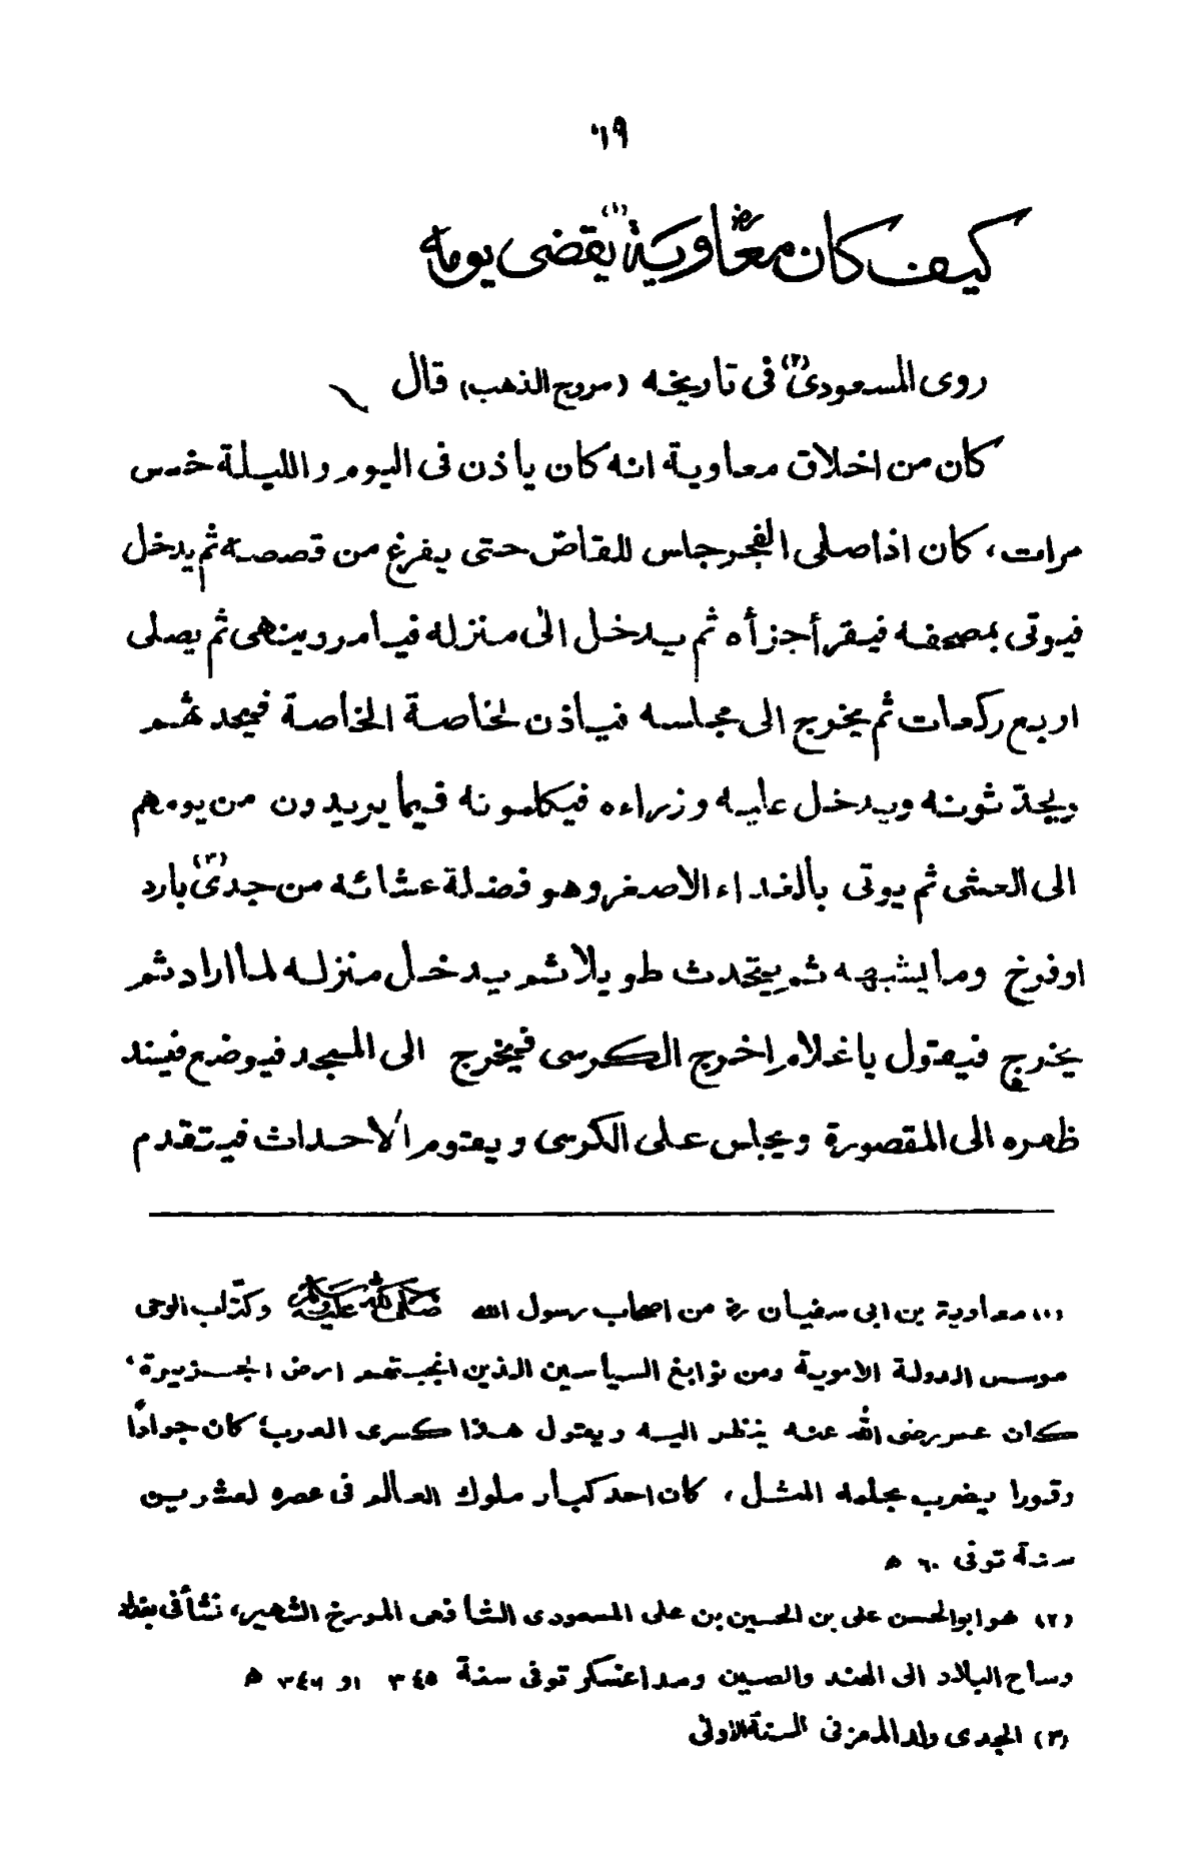 ٦٩
كيف كان معاوية رض (١) يقضى يومه
روى المسعودى (٢) فى تاريخه (مروج الذهب) قال
كان من اخلاق معاوية انه كان ياذن فى اليوم والليلة خمس
مرات، كان اذا صلى الفجر جلس للقاصّ حتى يفرغ من قصصه ثم يدخل
فيوتى بمصحفه فيقرأ جزأه ثم يدخل الى منزله فيامر وينهى ثم يصلى
اربع ركعات ثم يخرج الى مجلسه فياذن لخاصة الخاصة فيحدثهم
ويحدّثونه ويدخل عليه وزراءه فيكلمونه فيما يريدون من يومهم
الى العشى ثم يوتى بالغداء الاصغر وهو فضلة عشائه من جدى (٣) بارد
اوفرخ وما يشبهه ثم يتحدث طويلا ثم يدخل منزله لما اراد ثم
يخرج فيقول يا غلام اخرج الكرسى فيخرج الى المسجد فيوضع فيسند
ظهره الى المقصورة ويجلس على الكرسى ويقوم الاحداث فيتقدم
(١) معاوية بن ابى سفيان رض من اصحاب رسول الله صلى الله عليه وسلم وكتّاب الوحى
موسس الدولة الاموية ومن نوابغ السياسين الذين انجبتهم ارض الجزيرة،
كان عمر رضى الله عنه ينظر اليه ويقول هذا كسرى العرب، كان جوادًا
وقورا يضرب بحلمه المثل، كان احد كبار ملوك العالم فى عصره لعشرين
سنة توفى ٦٠ ھ
(٢) هو ابو الحسن على بن الحسين بن على المسعودى الشافعى المورخ الشهير، نشأ فى بغداد
وساح البلاد الى الهند والصين ومداغسكر توفى سنة ٣٤٥ او ٣٤٦ ھ
(٣) الجدى ولد المعز فى السنة الاولى